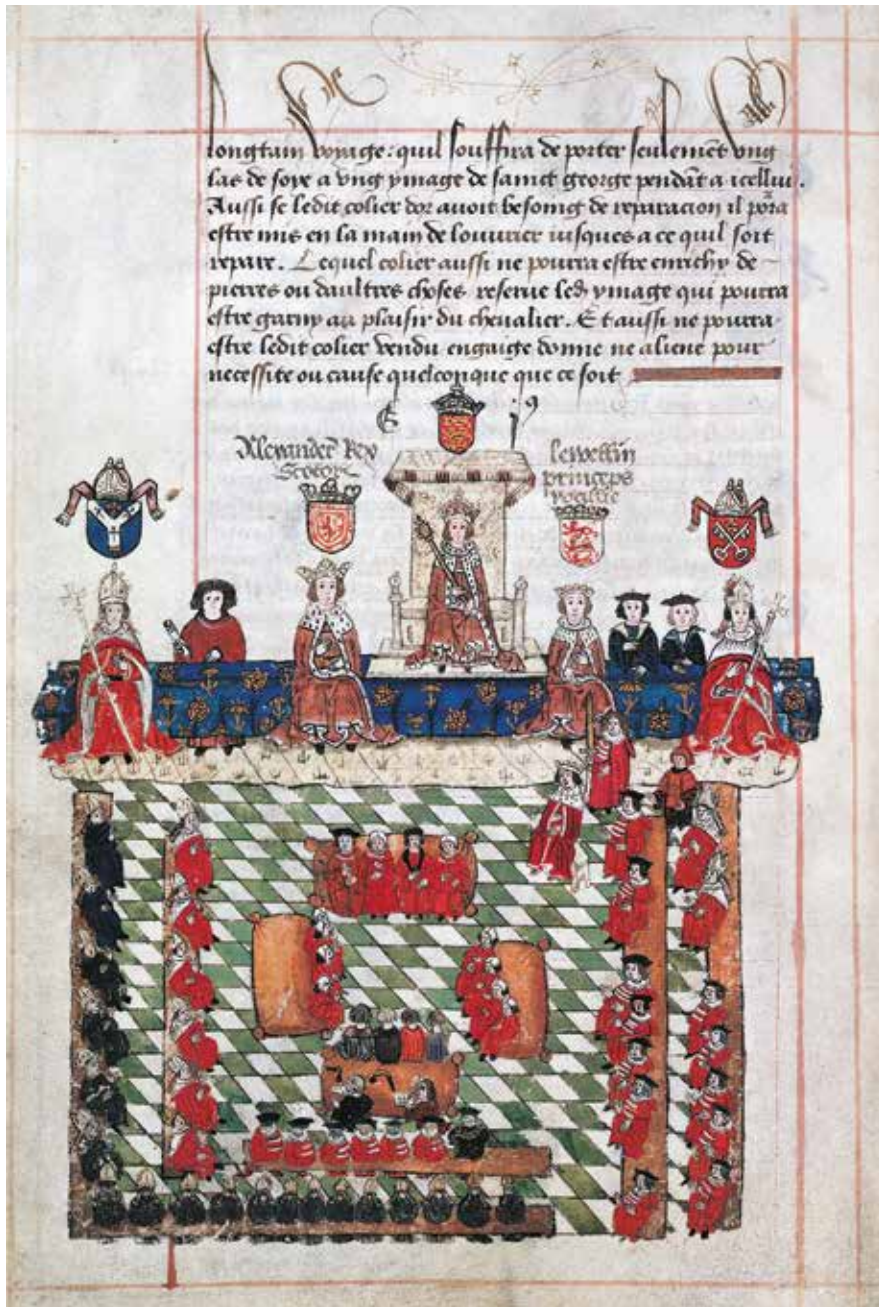 longtain voyage: quil souffira de porter seulemēt vng
las de soye a vng ymage de sainct george pendāt a icelluy.
Aussi se ledit colier dor avoit besoing de reparacion il pora
estre mis en la main de louvrier iusques a ce quil soit
repare. Lequel colier aussi ne pourra estre enrichy de
pierres ou daultres choses reserve led ymage qui pourra
estre garny au plaisir du chevalier. Et aussi ne pourra
estre ledit colier vendu engaige donne ne aliene pour
necessite ou cause quelconque que ce soit
Alexander Rex
Scotor
lewellin
princeps
wallie